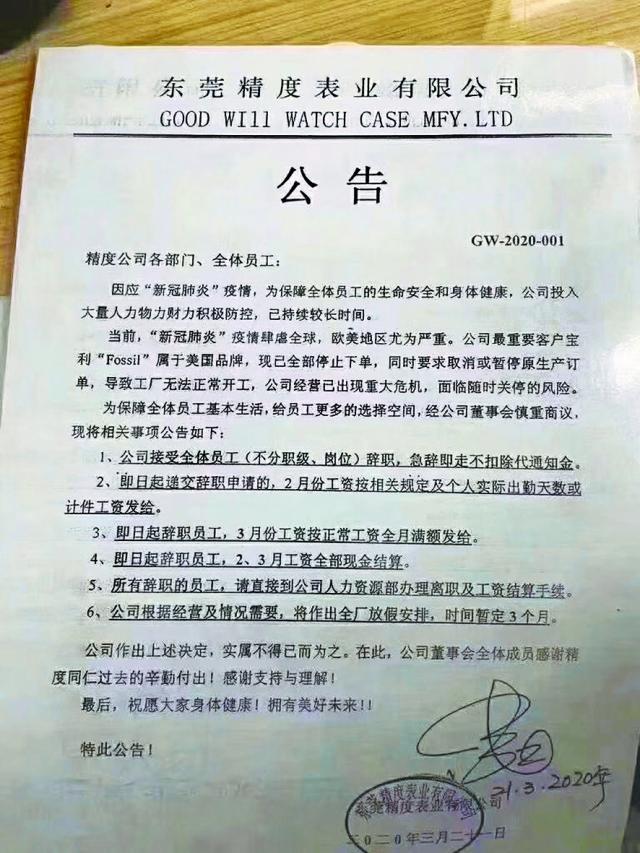 东莞精度表业有限公司
GOOD WIll WATCH CASE MFY.LTD
公告
GW-2020-001
精度公司各部门、全体员工：
因应“新冠肺炎”疫情，为保障全体员工的生命安全和身体健康，公司投入
大量人力物力财力积极防控，已持续较长时间。
当前，“新冠肺炎”疫情肆虐全球，欧美地区尤为严重。公司最重要客户宝
利“Fossil”属于美国品牌，现已全部停止下单，同时要求取消或暂停原生产订
单，导致工厂无法正常开工，公司经营已出现重大危机，面临随时关停的风险。
为保障全体员工基本生活，给员工更多的选择空间，经公司董事会慎重商议，
现将相关事项公告如下：
1、公司接受全体员工（不分职级、岗位）辞职，急辞即走不扣除代通知金。
2、即日起递交辞职申请的，2月份工资按相关规定及个人实际出勤天数或
计件工资发给。
3、即日起辞职员工，3月份工资按正常工资全月满额发给。
4、即日起辞职员工，2、3月工资全部现金结算。
5、所有辞职的员工，请直接到公司人力资源部办理离职及工资结算手续。
6、公司根据经营及情况需要，将作出全厂放假安排，时间暂定3个月。
公司作出上述决定，实属不得已而为之。在此，公司董事会全体成员感谢精
度同仁过去的辛勤付出！感谢支持与理解！
最后，祝愿大家身体健康！拥有美好未来！！
特此公告！
21.3.2020年
东莞精度表业有限公司
东莞精度表业有限公司
二〇二〇年三月二十一日